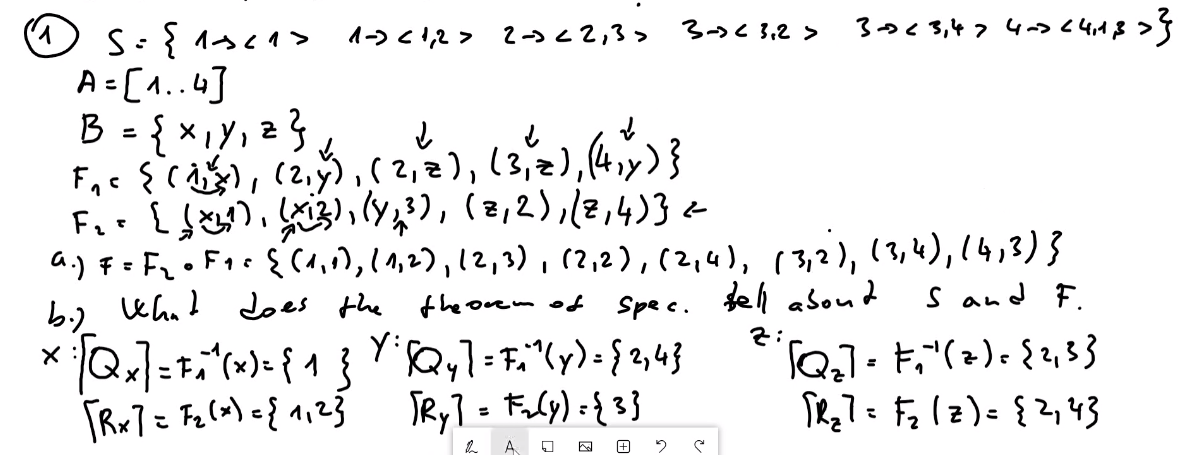 ① S = { 1→<1> 1→<1,2> 2→<2,3> 3→<3,2> 3→<3,4> 4→<4,1,3>}
A = [1..4]
B = {x, y, z}
F₁ = {(1,x), (2,y), (2,z), (3,z), (4,y)}
F₂ = {(x,1), (x,2), (y,3), (z,2), (z,4)} ←
a.) F = F₂ ∘ F₁ = {(1,1), (1,2), (2,3), (2,2), (2,4), (3,2), (3,4), (4,3)}
b.) What does the theorem of spec. tell about S and F.
x: ⌈Qx⌉ = F₁⁻¹(x) = {1} y: ⌈Qy⌉ = F₁⁻¹(y) = {2,4} z: ⌈Qz⌉ = F₁⁻¹(z) = {2,3}
⌈Rx⌉ = F₂(x) = {1,2} ⌈Ry⌉ = F₂(y) = {3} ⌈Rz⌉ = F₂(z) = {2,4}